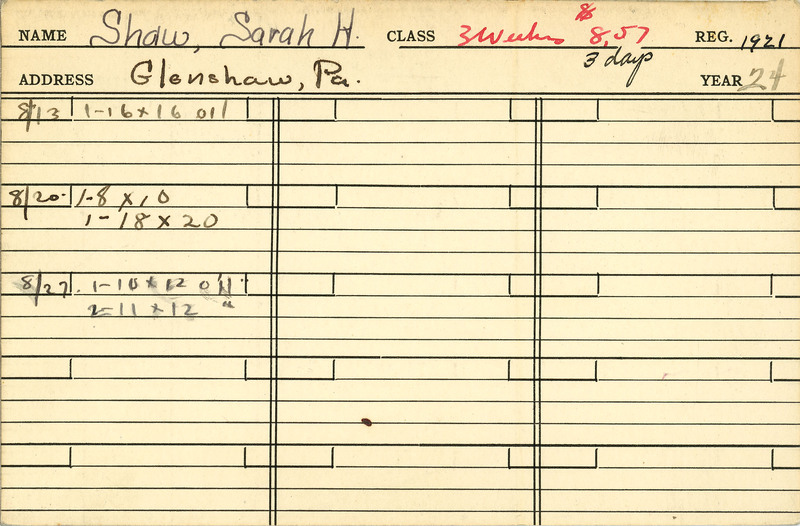 NAME Shaw, Sarah H. CLASS 3 Weeks $ 8,57 REG. 1921
3 days
ADDRESS Glenshaw, Pa. YEAR 24
8/13 1-16 x 16 oil
8/20 1-8 x 10
1-18 x 20
8/27 . 1-10 x 12 oil
2-11 x 12 "